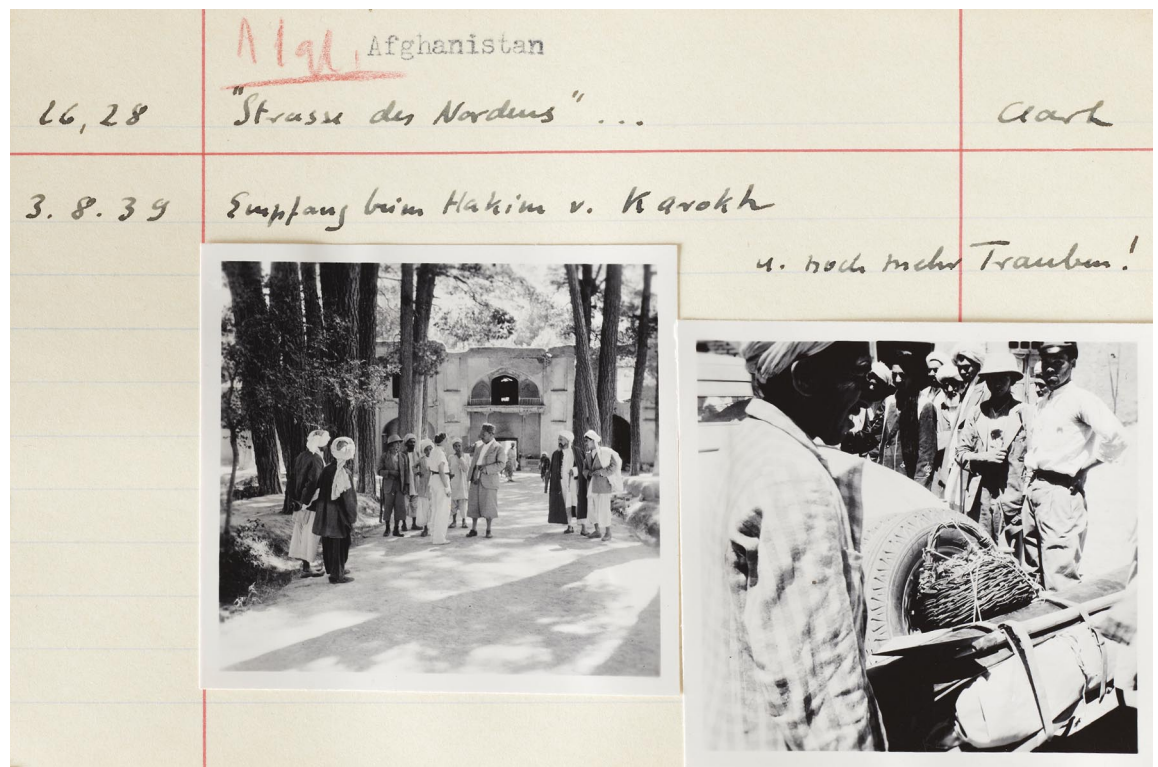 Afgh. Afghanistan
26,28 "Strasse des Nordens" ... Clark
3. 8. 39 Empfang beim Hakim v. Karokh
u. noch mehr Trauben!